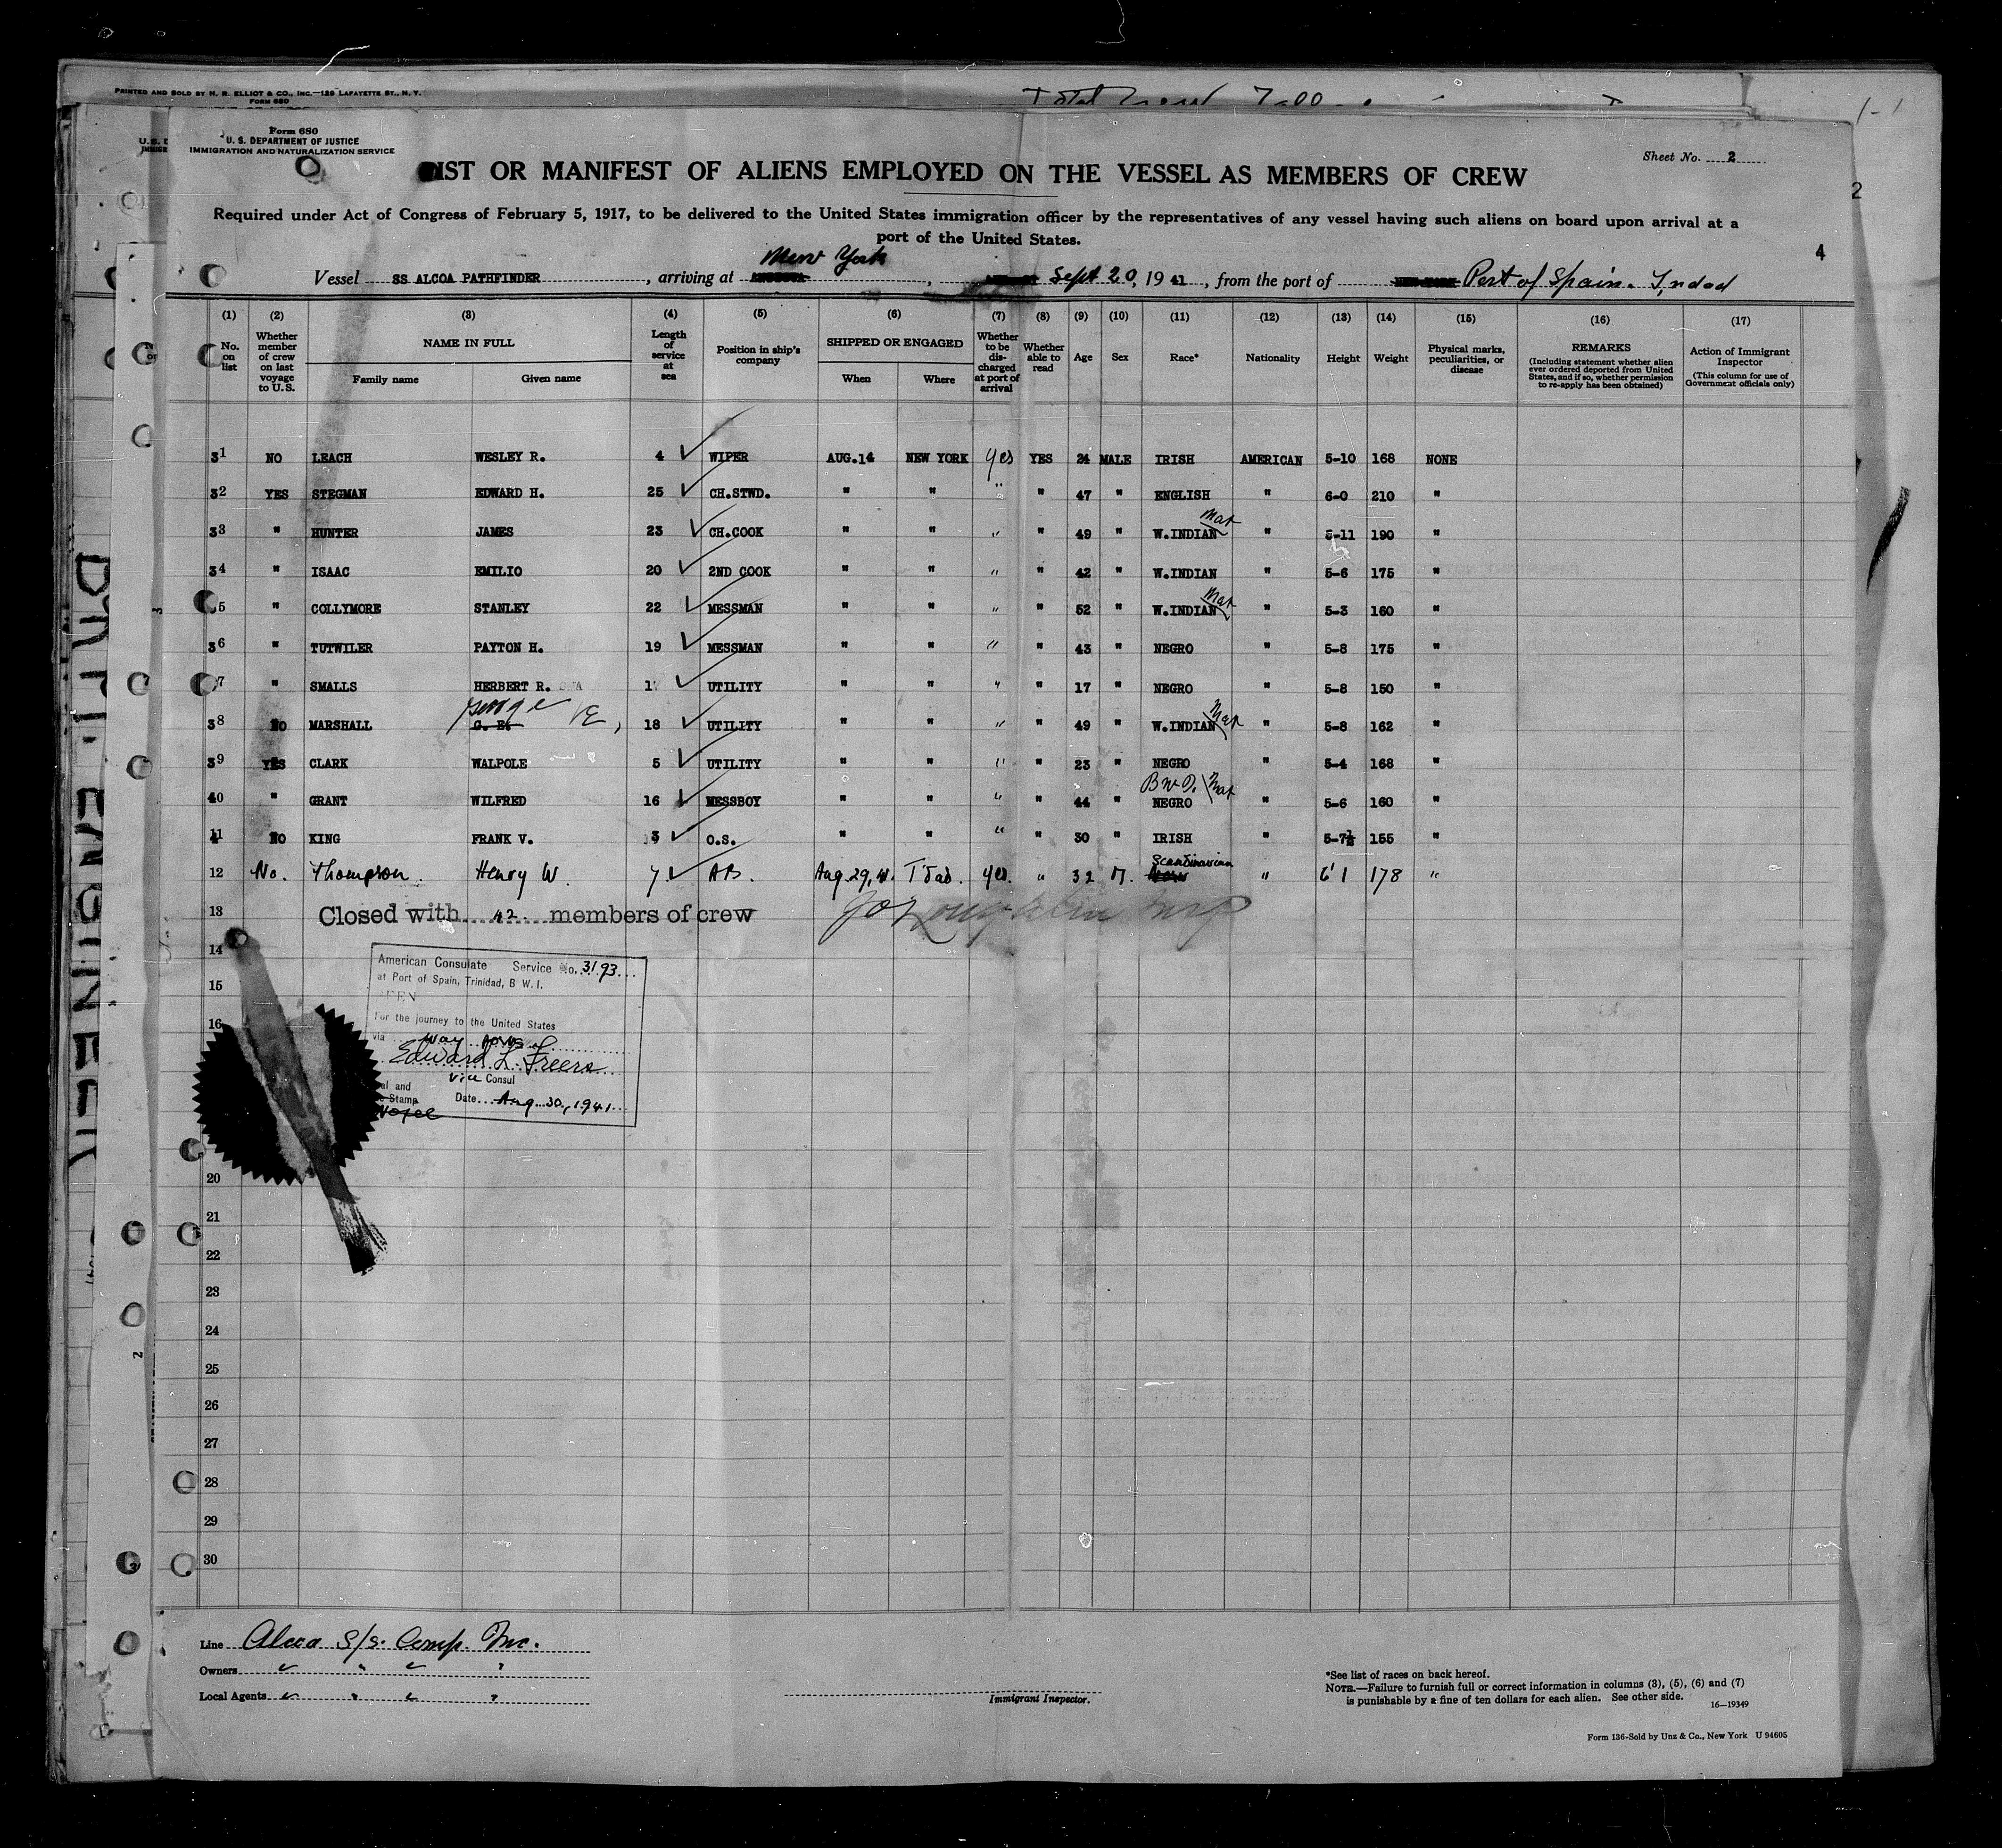 PRINTED AND SOLD BY H. R. ELLIOT & CO., INC.—129 LAFAYETTE ST., N. Y.
FORM 680
Form 680
U. S. DEPARTMENT OF JUSTICE
IMMIGRATION AND NATURALIZATION SERVICE
Sheet No. 2
IST OR MANIFEST OF ALIENS EMPLOYED ON THE VESSEL AS MEMBERS OF CREW
2
Required under Act of Congress of February 5, 1917, to be delivered to the United States immigration officer by the representatives of any vessel having such aliens on board upon arrival at a
port of the United States.
4
Vessel SS ALCOA PATHFINDER, arriving at New York, Sept 20, 1941, from the port of Port of Spain. T,ndad
(1) (2) (3) (4) (5) (6) (7) (8) (9) (10) (11) (12) (13) (14) (15) (16) (17)
No. on list Whether member of crew on last voyage to U.S. NAME IN FULL Family name Given name Length of service at sea Position in ship's company SHIPPED OR ENGAGED When Where Whether to be discharged at port of arrival Whether able to read Age Sex Race* Nationality Height Weight Physical marks, peculiarities, or disease REMARKS (Including statement whether alien ever ordered deported from United States, and if so, whether permission to re-apply has been obtained) Action of Immigrant Inspector (This column for use of Government officials only)
31 NO LEACH WESLEY R. 4 WIPER AUG.14 NEW YORK Yes YES 24 MALE IRISH AMERICAN 5-10 168 NONE
32 YES STEGMAN EDWARD H. 25 CH.STWD. " " " " 47 " ENGLISH " 6-0 210 "
33 " HUNTER JAMES 23 CH.COOK " " " " 49 " W.INDIAN Nat " 5-11 190 "
34 " ISAAC EMILIO 20 2ND COOK " " " " 42 " W.INDIAN " 5-6 175 "
5 " COLLYMORE STANLEY 22 MESSMAN " " " " 52 " W.INDIAN Nat " 5-3 160 "
36 " TUTWILER PAYTON H. 19 MESSMAN " " " " 43 " NEGRO " 5-8 175 "
7 " SMALLS HERBERT R. UTILITY " " " " 17 " NEGRO " 5-8 150 "
38 NO MARSHALL George E, G. E. 18 UTILITY " " " " 49 " W.INDIAN Nat " 5-8 162 "
39 YES CLARK WALPOLE 5 UTILITY " " " " 23 " NEGRO " 5-4 168 "
40 " GRANT WILFRED 16 MESSBOY " " " " 44 " B W I. Nat NEGRO " 5-6 160 "
41 NO KING FRANK V. 3 O.S. " " " " 30 " IRISH " 5-7½ 155 "
12 No. Thompson Henry W. 7 AB. Aug. 29, 41. T'dad. yes. " 32 M. Scandinavian " 6'1 178 "
13 Closed with 42 members of crew
14
American Consulate Service No. 3193
at Port of Spain, Trinidad, B W. I.
15
For the journey to the United States
16
via way ports
Edward L. Freers
Vice Consul
Stamp Date Aug. 30, 1941
20
21
22
23
24
25
26
27
28
29
30
Line Alcoa S/s. Comp. Inc.
Owners " " " "
Local Agents " " " "
Immigrant Inspector.
*See list of races on back hereof.
NOTE.—Failure to furnish full or correct information in columns (3), (5), (6) and (7)
is punishable by a fine of ten dollars for each alien. See other side.
16—19349
Form 136-Sold by Unz & Co., New York U 94605